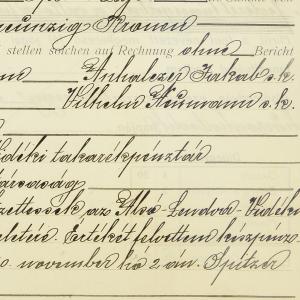 neunzig Kronen
stellen solchen auf Rechnung ohne Bericht
Anhalczer Jakab s.k.
Vilhelm Neumann s.k.
vidéki takarékpénztár
társaság
az Alsó-Lendva-Vidéki
Értékét felvettem készpénz
november hó 2 án. Spitzer